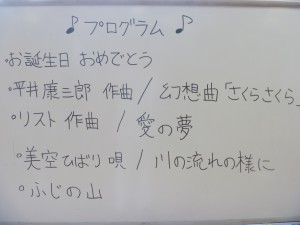 ♪プログラム♪
・お誕生日 おめでとう
・平井康三郎 作曲 / 幻想曲「さくらさくら」
・リスト 作曲 / 愛の夢
・美空ひばり 唄 / 川の流れの様に
・ふじの山